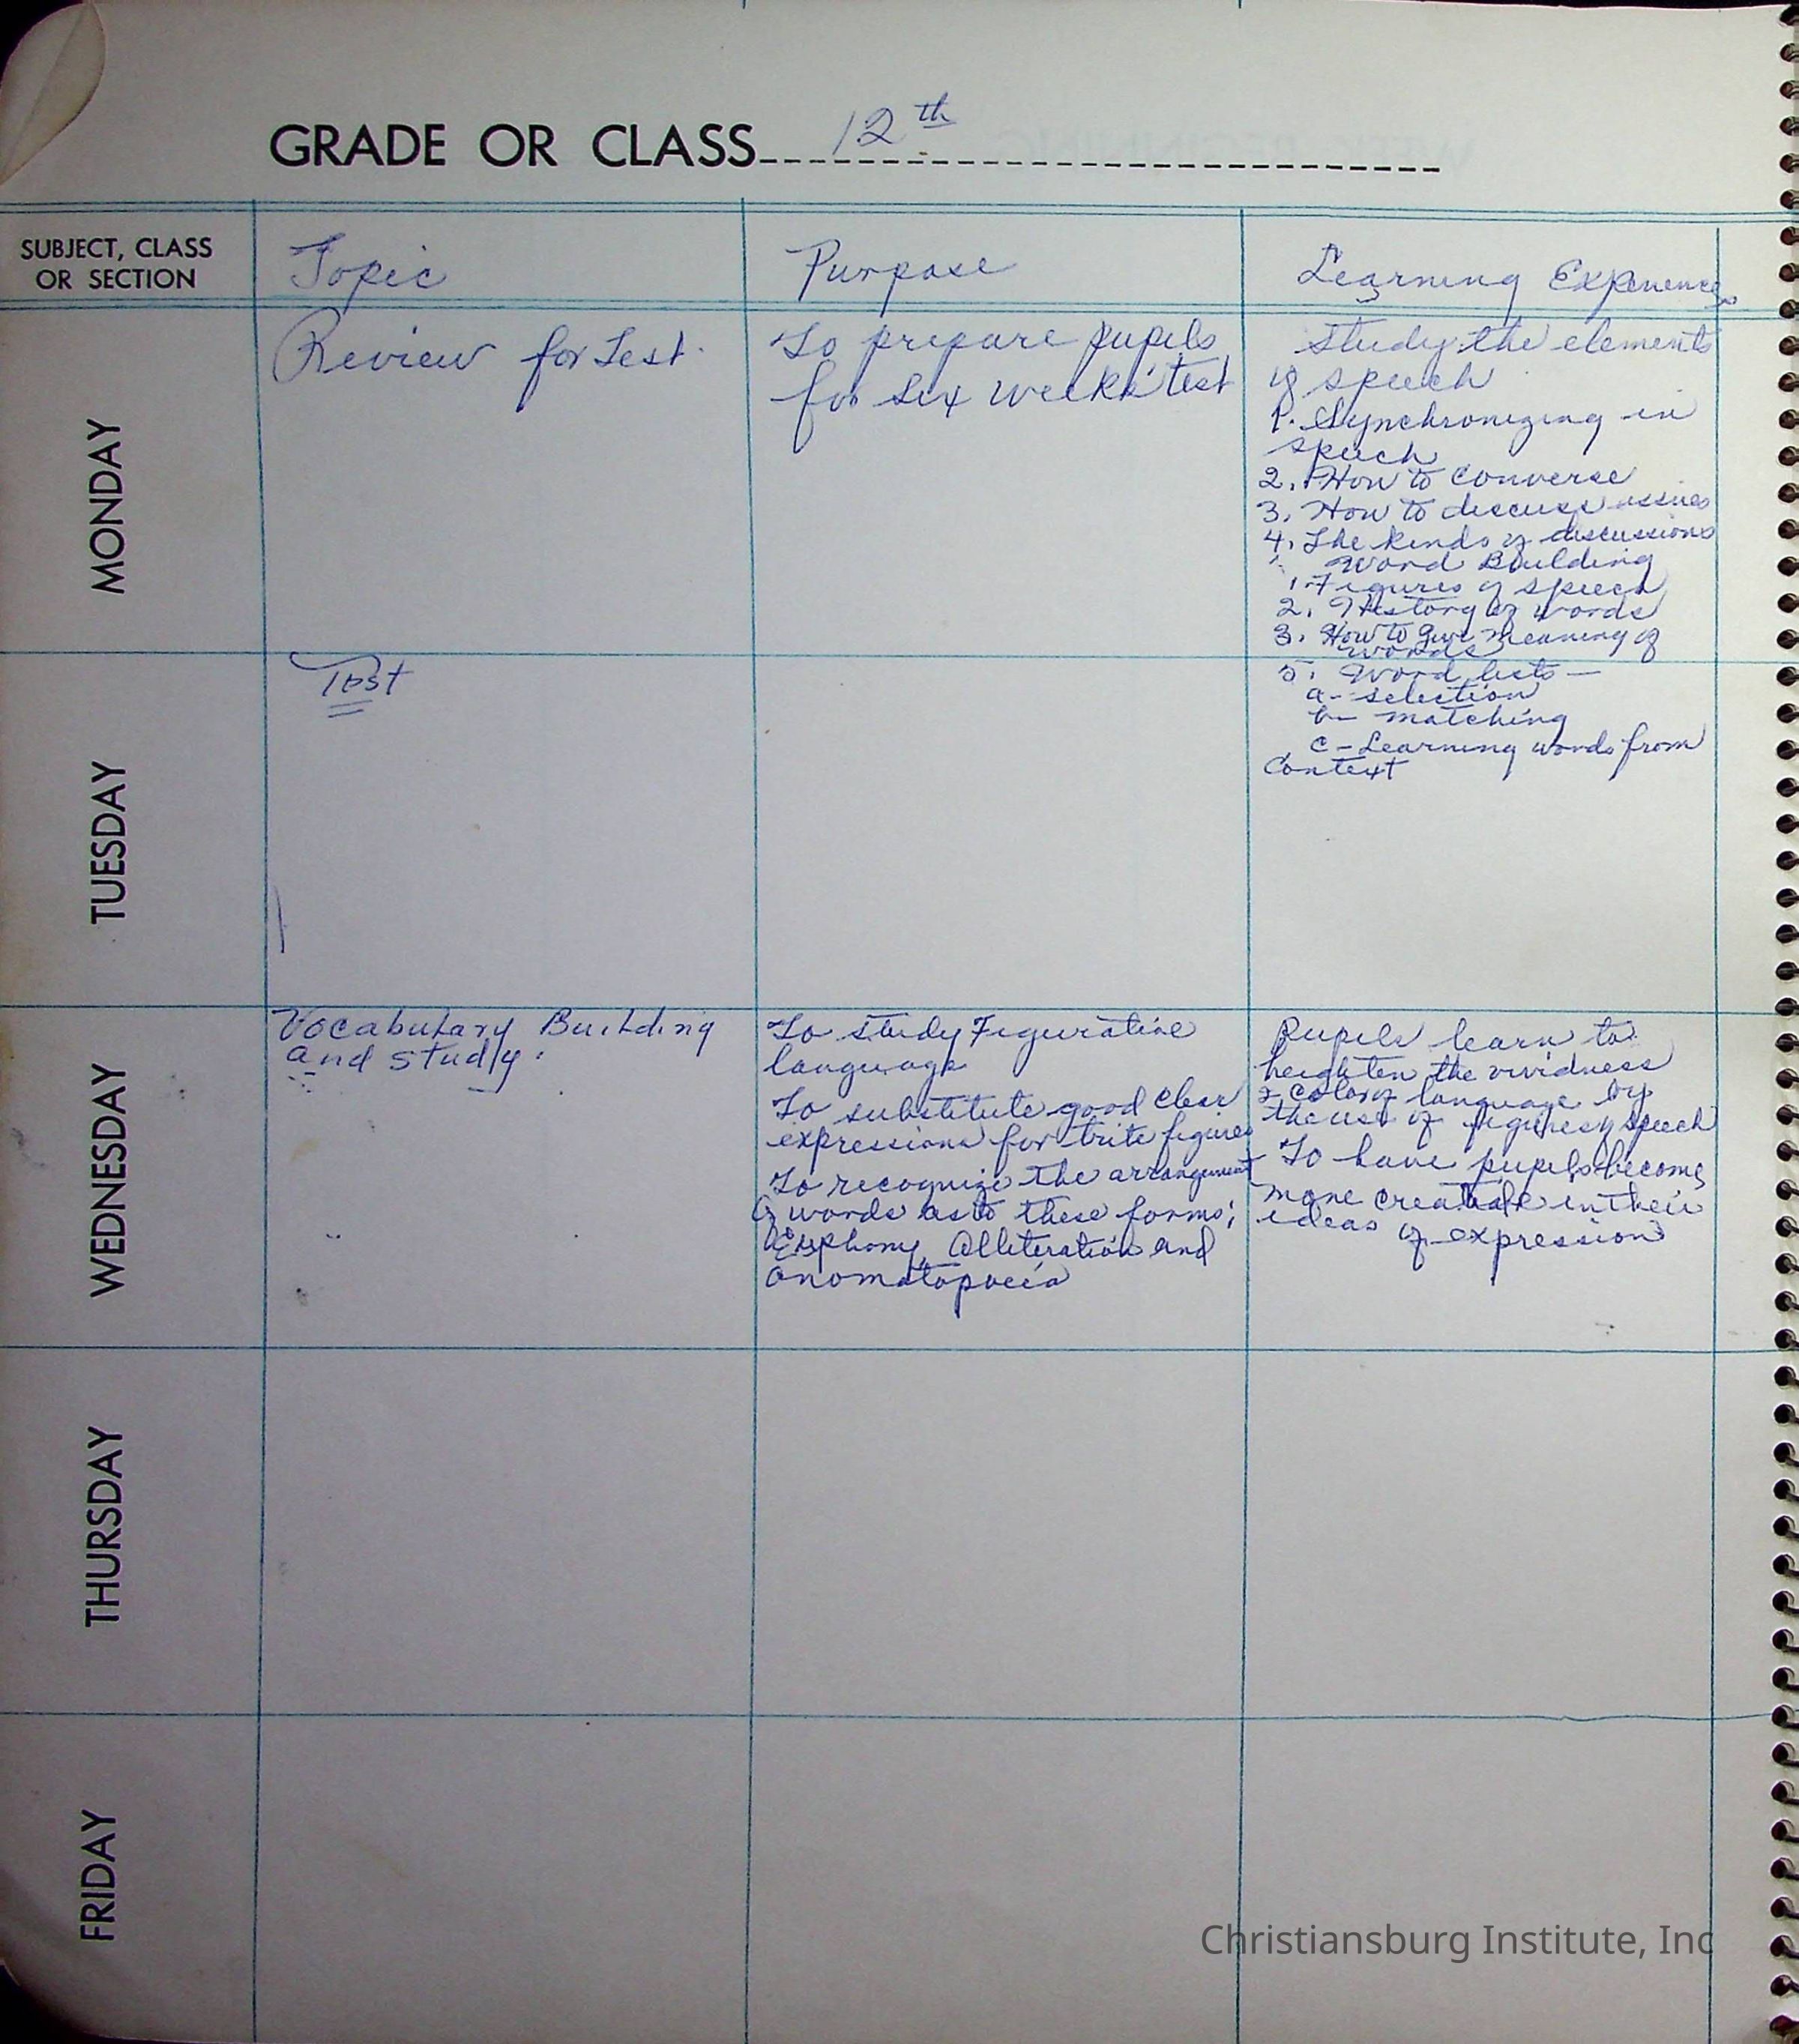 GRADE OR CLASS 12th
SUBJECT, CLASS
OR SECTION
Topic
Purpose
Learning Experiences
MONDAY
Review for Test.
To prepare pupils
for six weeks' test
Study the elements
of speech
1. Synchronizing in
speech
2. How to converse
3. How to discuss issues
4. The kinds of discussions
Word Building
1. Figures of speech
2. History of words
3. How to give meaning of
words
TUESDAY
Test
5. Word lists —
a- selection
b- matching
c- Learning words from
context
WEDNESDAY
Vocabulary Building
and study.
To study Figurative
language
To substitute good clear
expressions for trite figures
To recognize the arrangement
of words as to these forms;
Euphony, Alliteration and
Onomatopoeia
Pupils learn to
heighten the vividness
& color of language by
the use of figures of speech
To have pupils become
more creative in their
ideas of expression
THURSDAY
FRIDAY
Christiansburg Institute, Inc